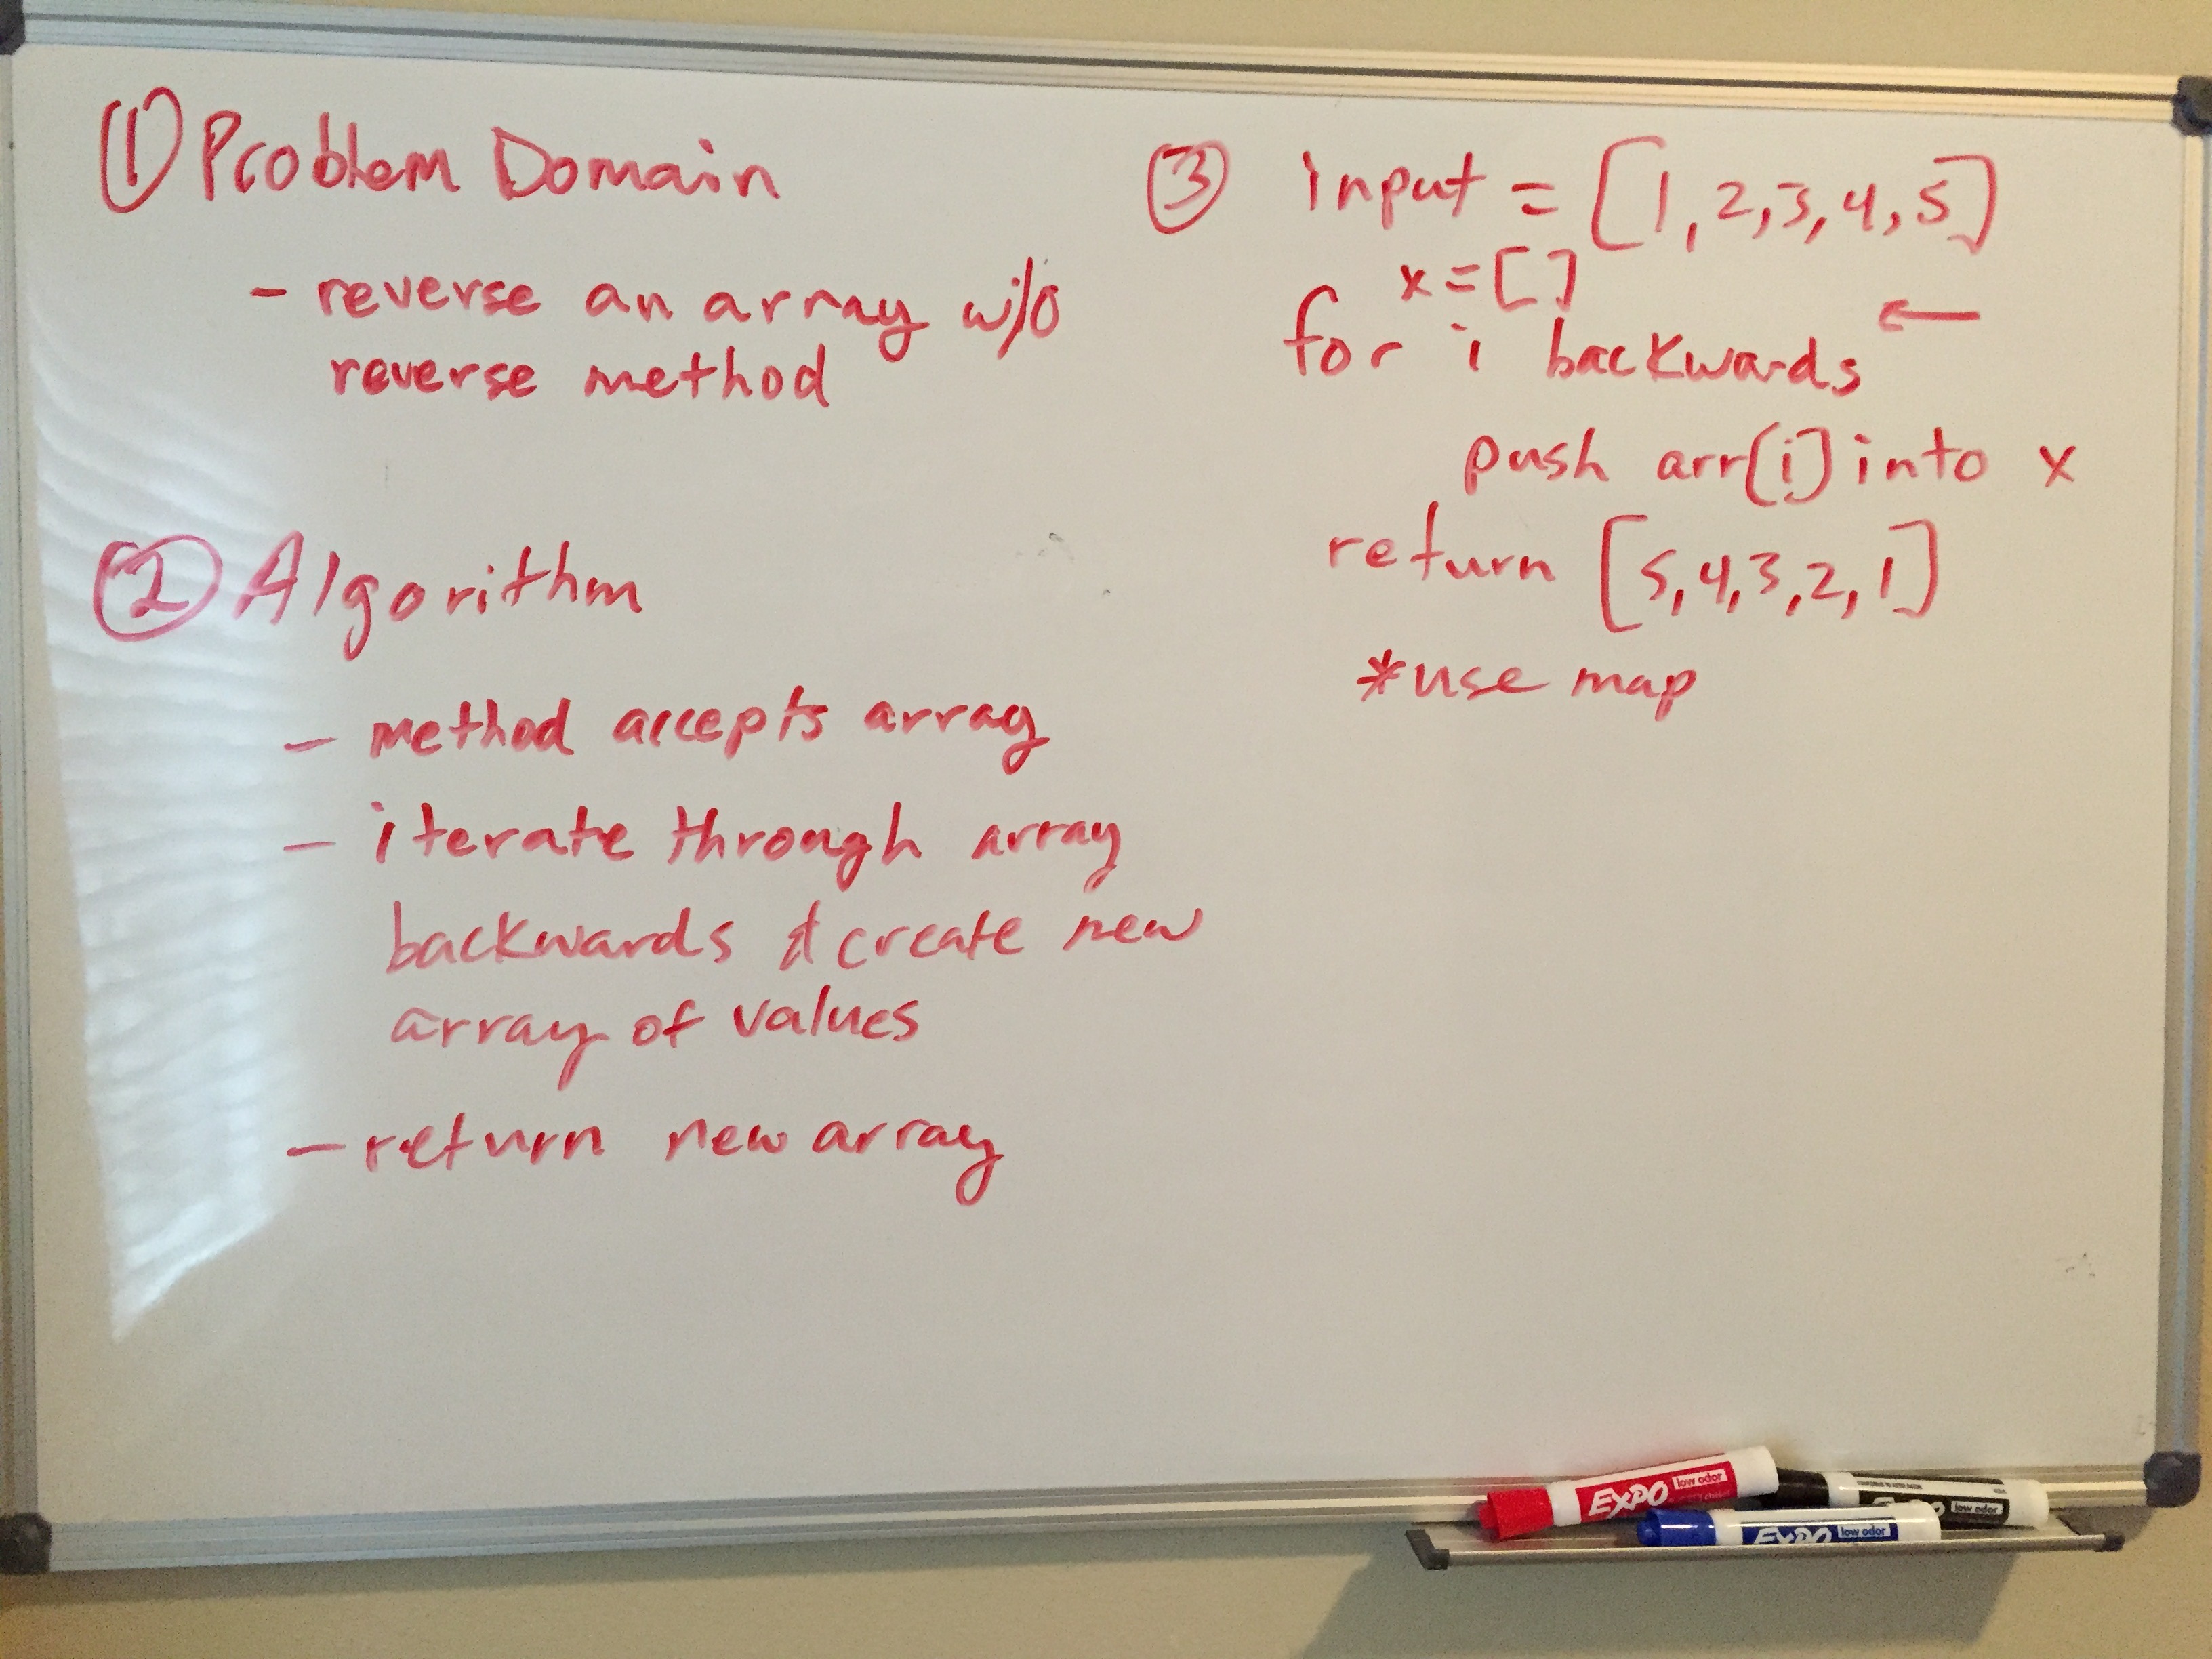 ① Problem Domain
- reverse an array w/o
reverse method
② Algorithm
- method accepts array
- iterate through array
backwards & create new
array of values
- return new array
③ input = [1,2,3,4,5]
x = []
for i backwards ←
push arr[i] into x
return [5,4,3,2,1]
*use map
EXPO low odor
low odor
EXPO low odor